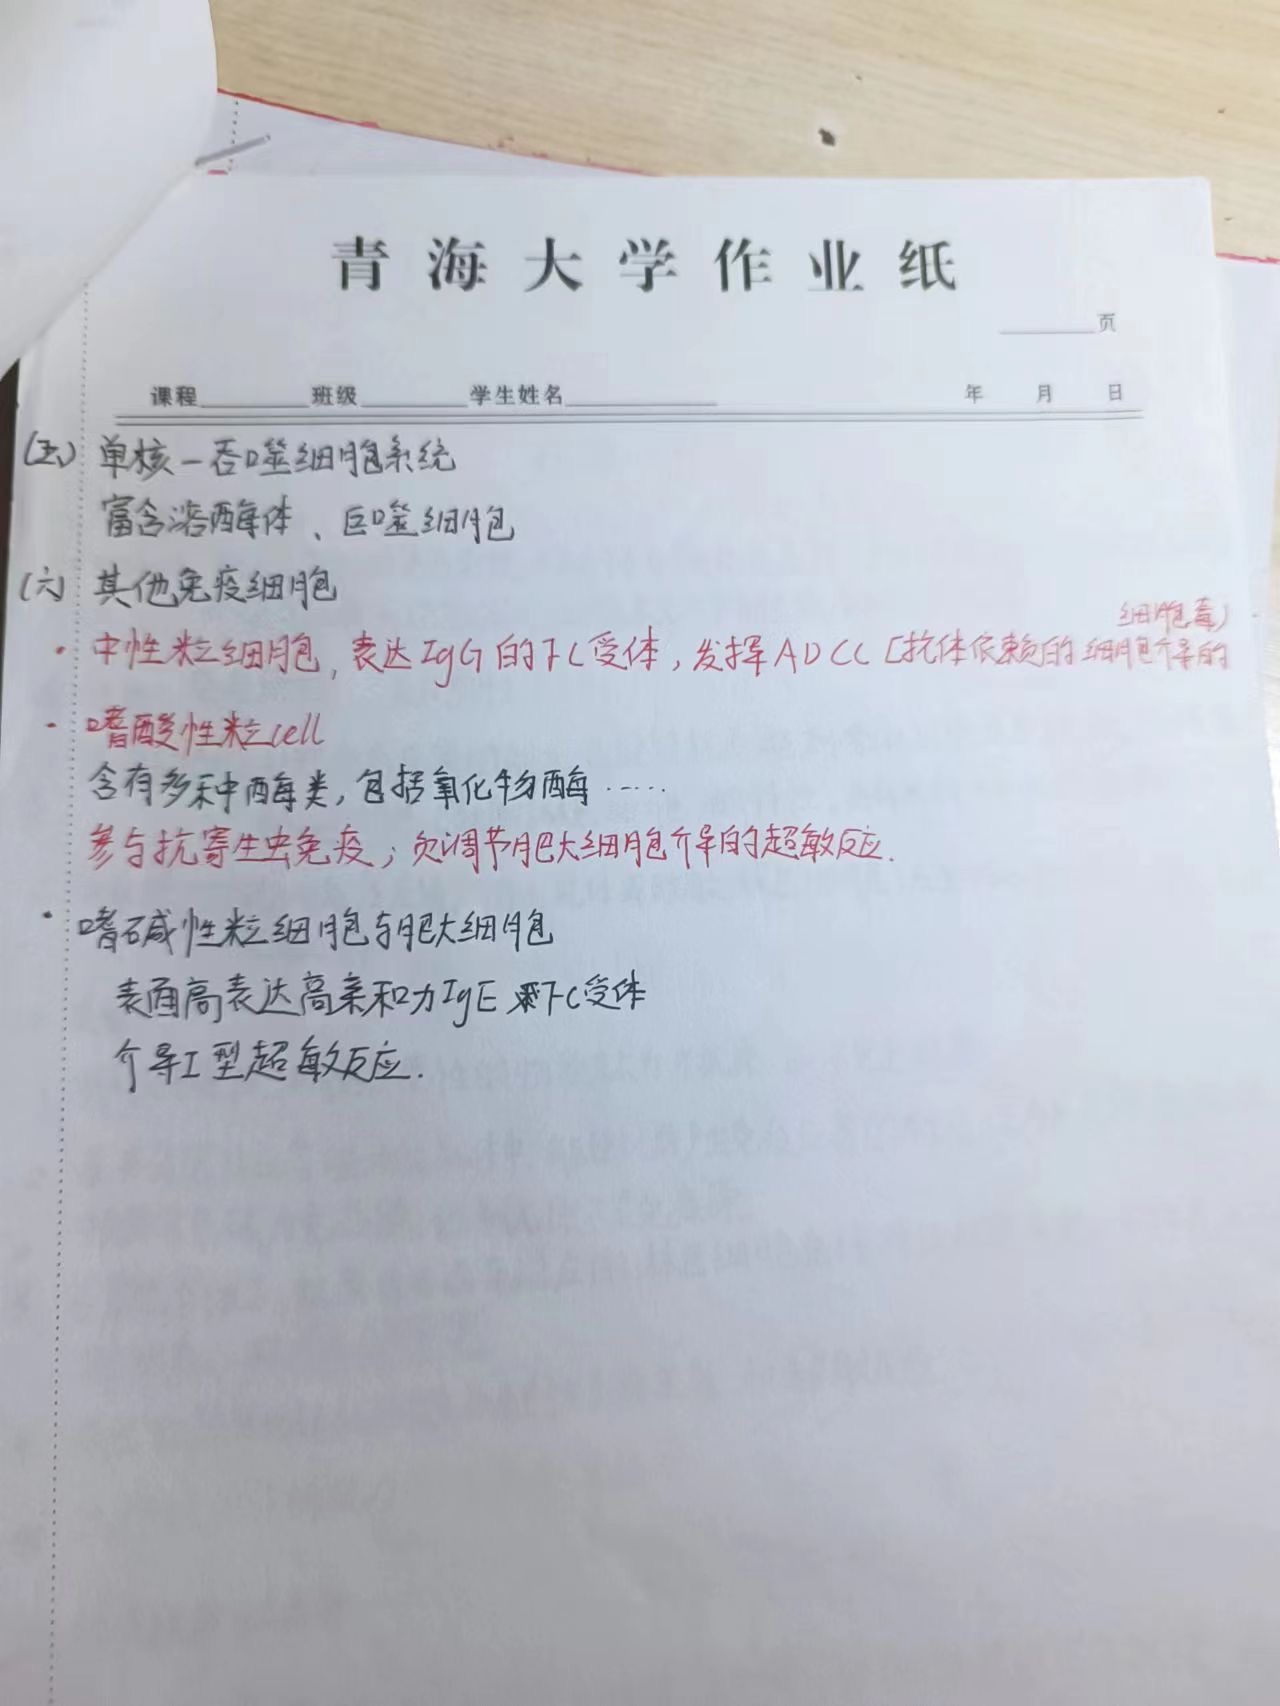 青海大学作业纸
页
课程 班级 学生姓名 年 月 日
(五) 单核-吞噬细胞系统
富含溶酶体、巨噬细胞
(六) 其他免疫细胞
细胞毒)
·中性粒细胞,表达IgG的FC受体,发挥ADCC[抗体依赖的细胞介导的
·嗜酸性粒cell
含有多种酶类,包括氧化物酶……
参与抗寄生虫免疫;负调节肥大细胞介导的超敏反应.
·嗜碱性粒细胞与肥大细胞
表面高表达高亲和力IgE FC受体
介导I型超敏反应.